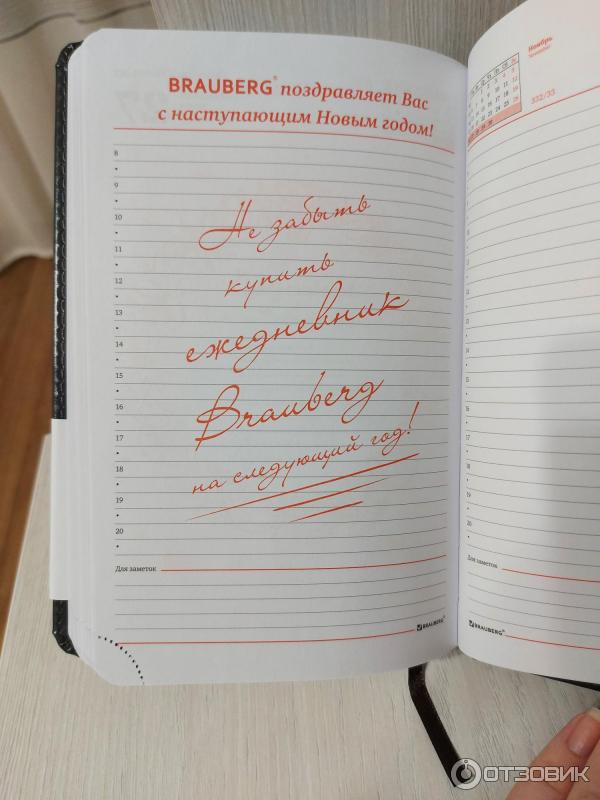 BRAUBERG® поздравляет Вас
с наступающим Новым годом!
8
9
10
11
12
13
14
15
16
17
18
19
20
Не забыть
купить
ежедневник
Brauberg
на следующий год!
Для заметок
BRAUBERG®
Ноябрь
November
332/33
Для заметок
BRAUBERG®
ОТЗОВИК